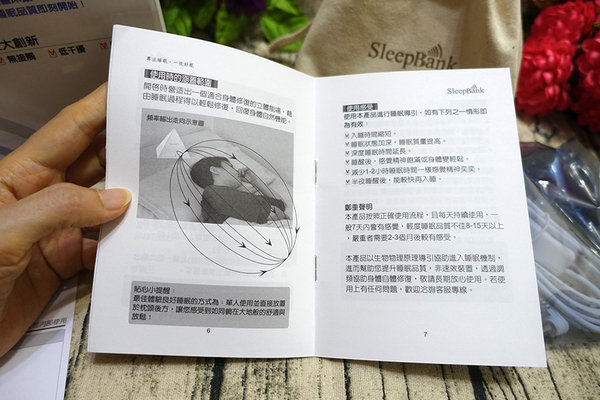 睡眠品質即刻開始！
大創新
低干擾
SleepBank
專注睡眠，一夜好眠
使用時的涵蓋範圍
開啓時營造出一個適合身體修復的立體能場，藉
由睡眠過程得以輕鬆修復，回復身體自然機能。
頻率輸出走向示意圖
貼心小提醒：
最佳體驗良好睡眠的方式為：單人使用並直接放置
於枕頭後方，讓您感受到如同躺在大地般的舒適與
放鬆！
6
SleepBank
使用感受
使用本產品進行睡眠導引，如有下列之一情形即
為有效。
入睡時間縮短。
睡眠狀態加深，睡眠質量提高。
深度睡眠時間延長。
睡醒後，感覺精神飽滿或身體變輕鬆。
減少1-2小時睡眠時間一樣感覺精神奕奕。
半夜睡醒後，能較快再入睡。
鄭重聲明
本產品按照正確使用流程，且每天持續使用，一
般7天內會有感覺，輕度睡眠品質不佳8-15天以上
，嚴重者需要2-3個月後較有感受。
本產品以生物物理原理導引協助進入睡眠機制，
進而幫助您提升睡眠品質，非速效裝置，透過調
頻協助身體自體修復，敬請長期放心使用。若使
用上有任何問題，歡迎洽詢客服專線。
7